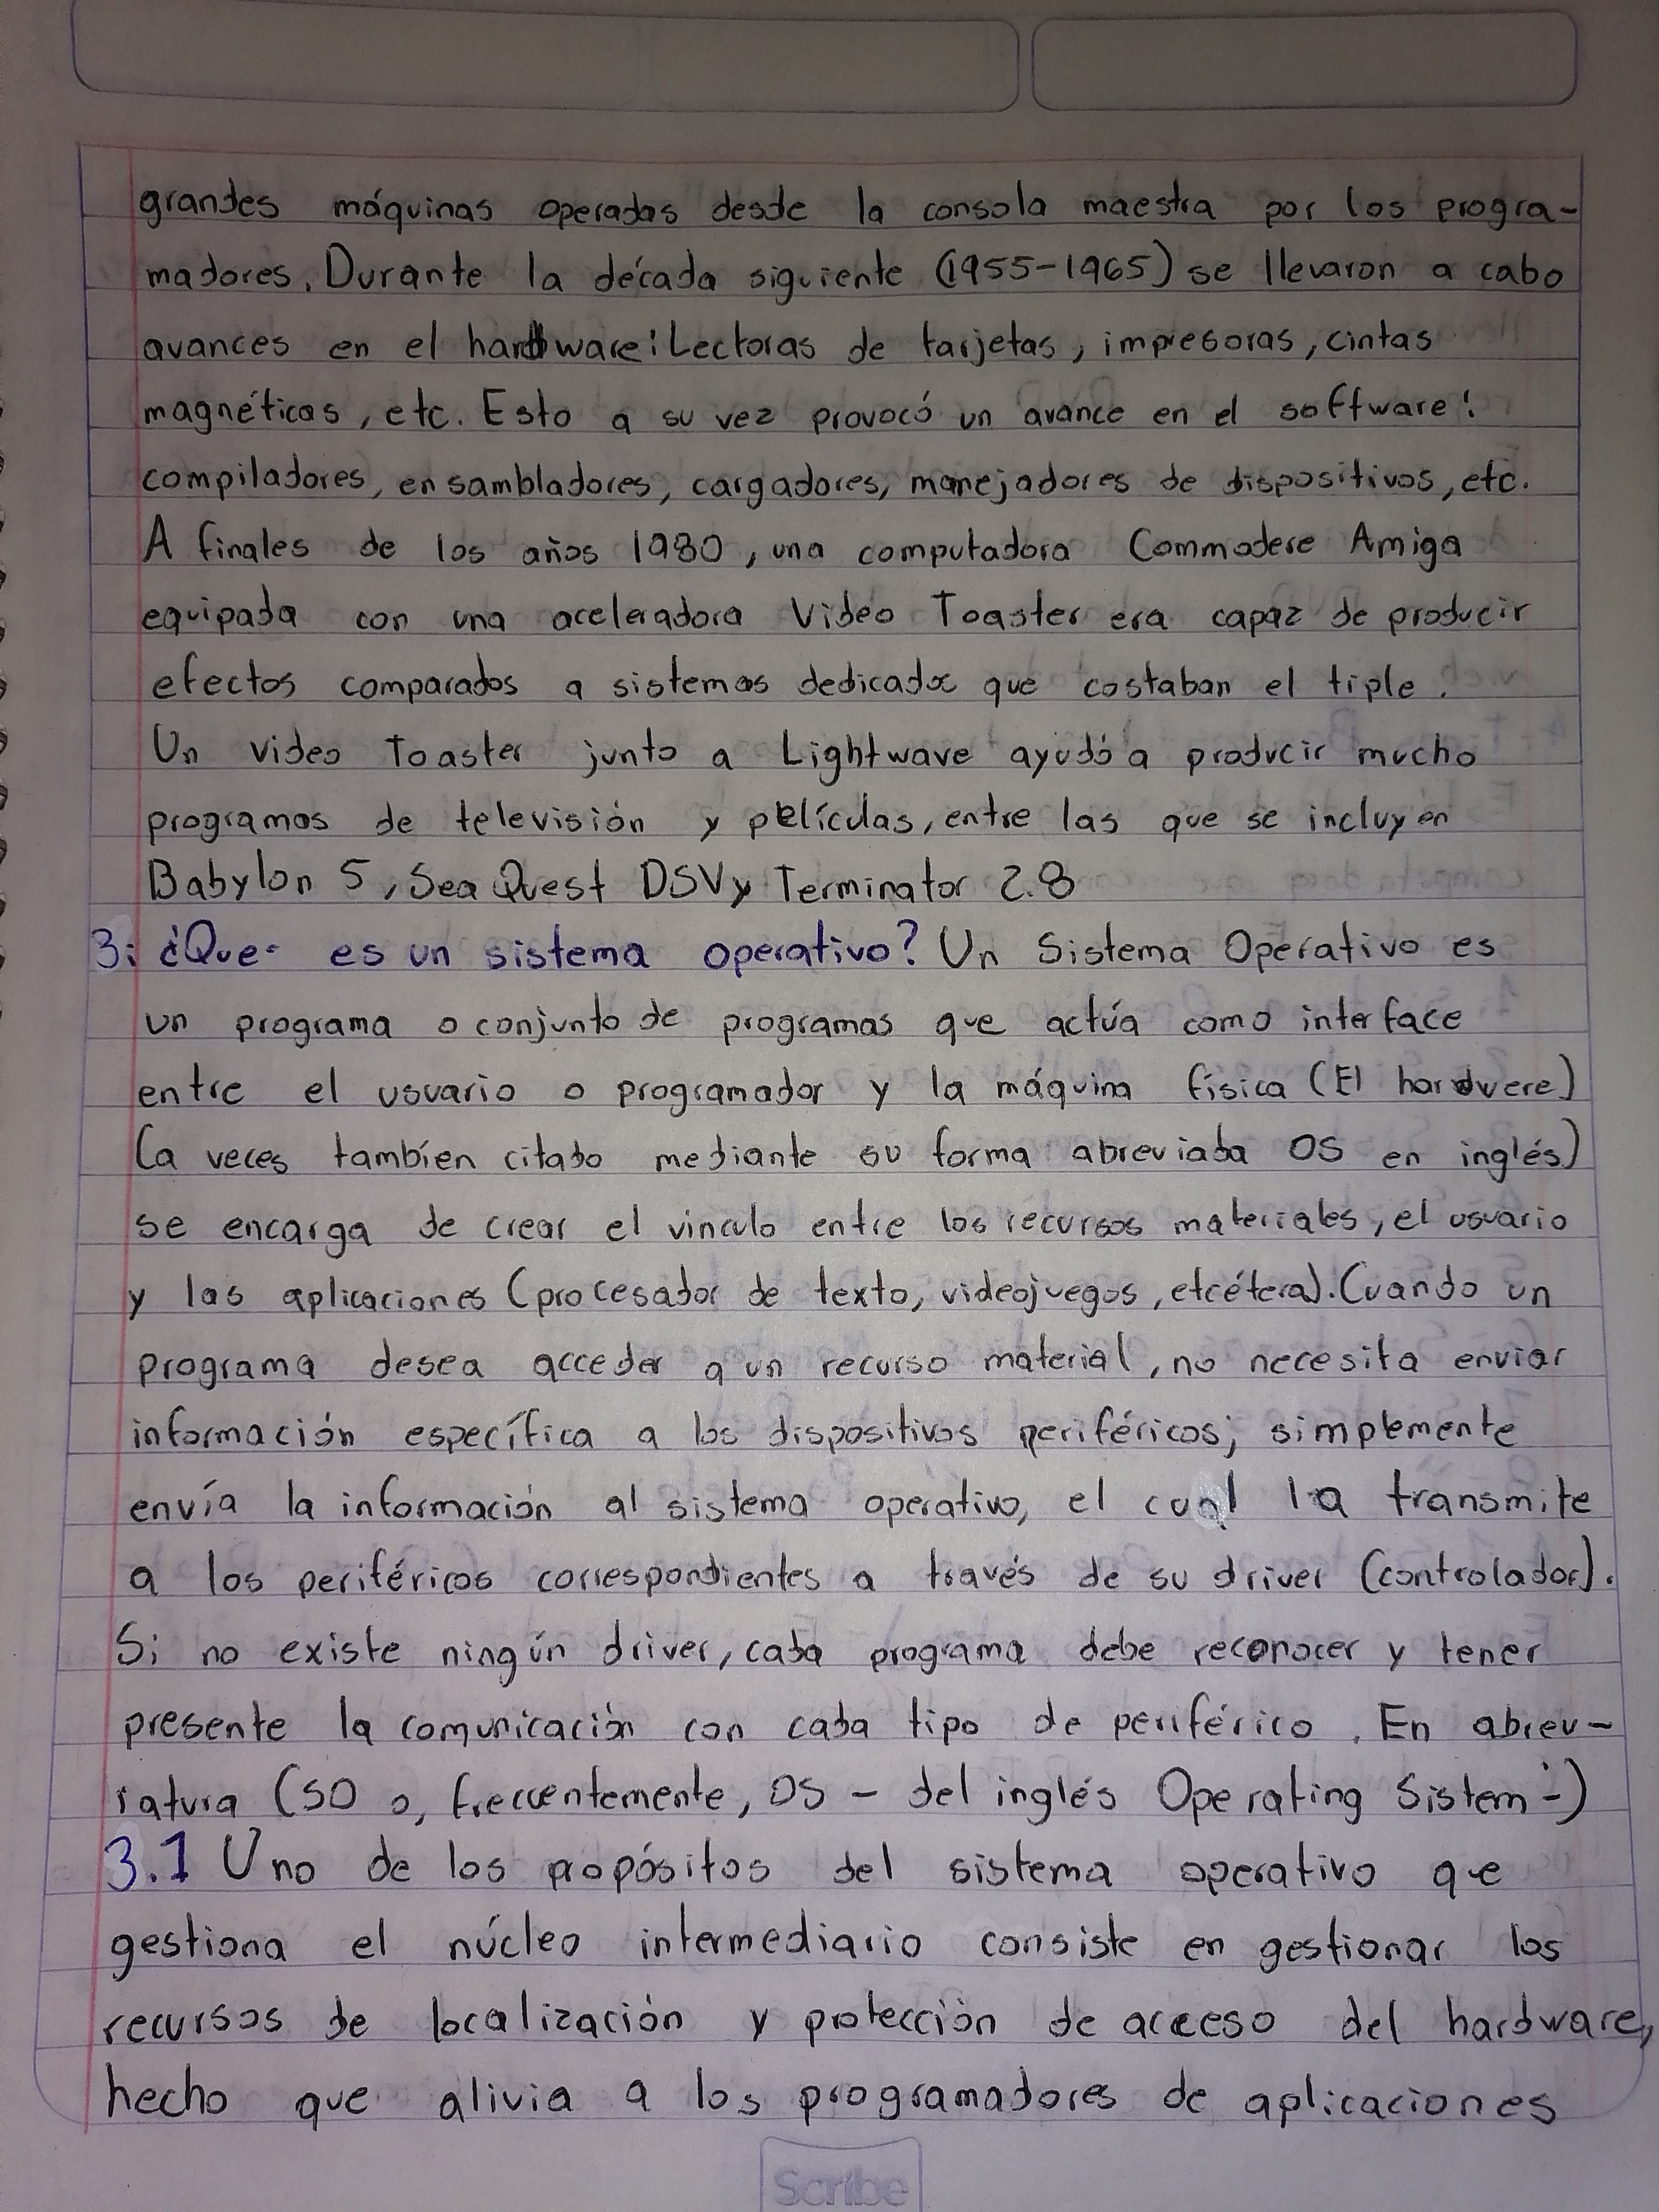 grandes máquinas operadas desde la consola maestra por los progra-
madores. Durante la década siguiente (1955-1965) se llevaron a cabo
avances en el hardware: Lectoras de tarjetas, impresoras, cintas
magnéticas, etc. Esto a su vez provocó un avance en el software:
compiladores, ensambladores, cargadores, manejadores de dispositivos, etc.
A finales de los años 1980, una computadora Commodere Amiga
equipada con una aceleradora Video Toaster era capaz de producir
efectos comparados a sistemas dedicados que costaban el tiple.
Un video Toaster junto a Lightwave ayudó a producir mucho
programas de televisión y películas, entre las que se incluyen
Babylon 5, Sea Quest DSV y Terminator 2.8
3: ¿Que es un sistema operativo? Un Sistema Operativo es
un programa o conjunto de programas que actúa como interface
entre el usuario o programador y la máquina física (El hardwere)
(a veces tambíen citado mediante su forma abreviada OS en inglés)
se encarga de crear el vinculo entre los recursos materiales, el usuario
y las aplicaciones (procesador de texto, videojuegos, etcétera). Cuando un
programa desea acceder a un recurso material, no necesita enviar
información específica a los dispositivos periféricos; simplemente
envía la información al sistema operativo, el cual la transmite
a los periféricos correspondientes a través de su driver (controlador).
Si no existe ningún driver, cada programa debe reconocer y tener
presente la comunicación con cada tipo de periférico. En abrev-
iatura (SO o, frecuentemente, OS - del inglés Operating Sistem-)
3.1 Uno de los propósitos del sistema operativo que
gestiona el núcleo intermediario consiste en gestionar los
recursos de localización y protección de acceso del hardware,
hecho que alivia a los programadores de aplicaciones
Scribe